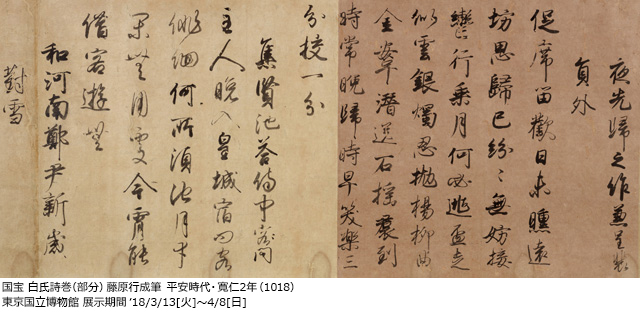 夜先歸之作兼呈裴
員外
促席留歡日未曛遠
坊思歸已紛々無妨按
轡行乗月何必逃盃走
似雲銀燭忍抛楊柳曲
金鞍潛送石榴裙到
時常晩歸時早笑樂三
分校一分
集賢池荅侍中問
主人晩入皇城宿問客
俳佪何所須池月幸
閑無用處今宵能
借客遊無
和河南鄭尹新歲
對雪
国宝 白氏詩巻（部分） 藤原行成筆 平安時代・寛仁2年（1018）
東京国立博物館 展示期間 '18/3/13[火]～4/8[日]